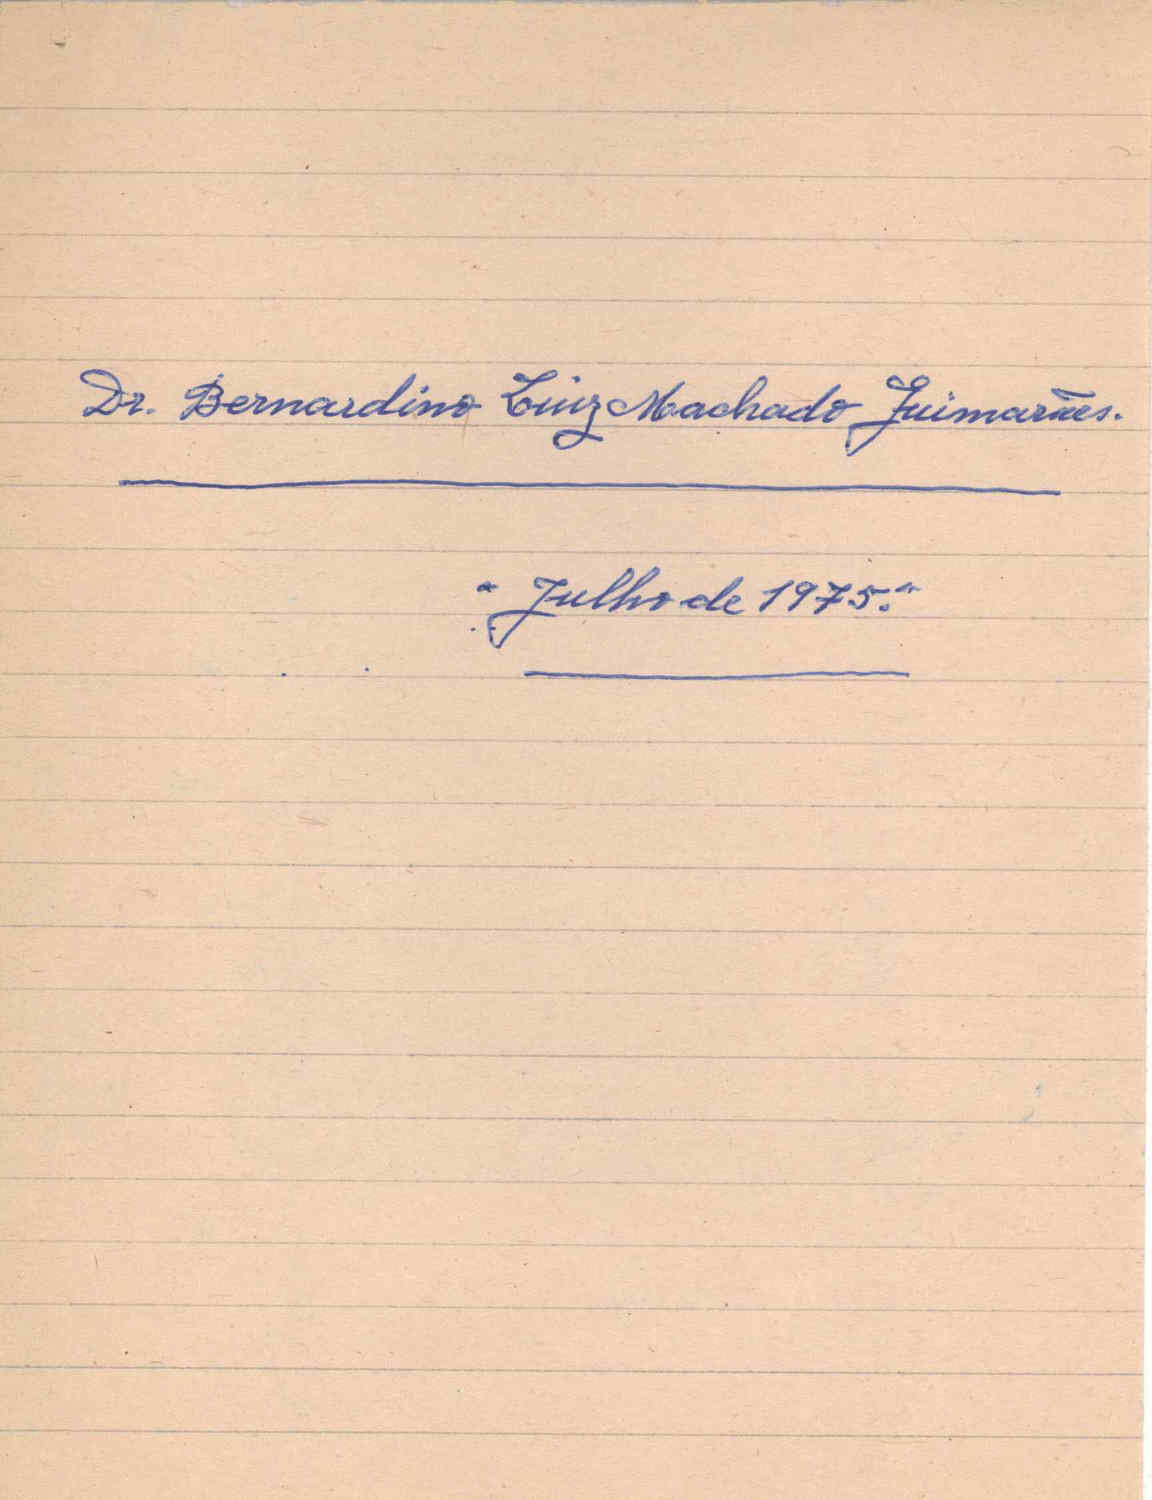 Dr. Bernardino Luiz Machado Guimarães.
"Julho de 1975."